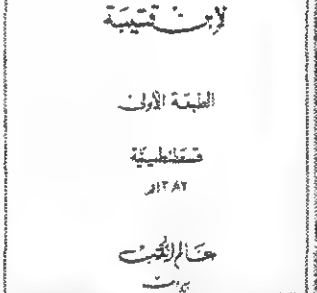 لابن قتيبة
الطبعة الأولى
قسطنطينية
١٢٨٢هـ
عالم الكتب
بيروت